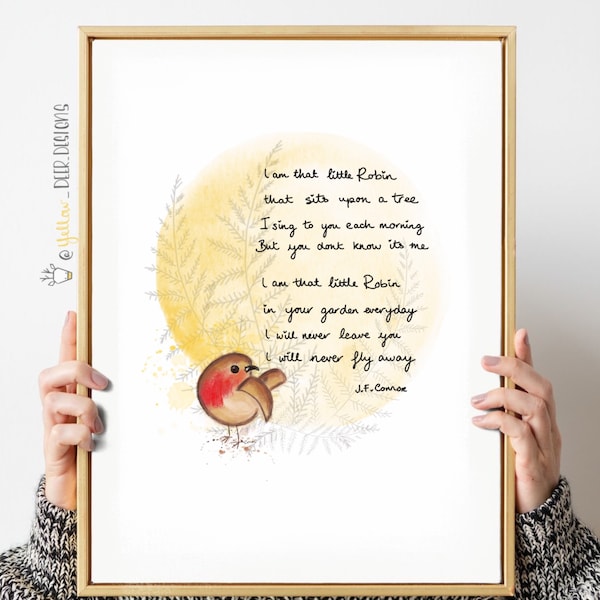 I am that little Robin
that sits upon a tree
I sing to you each morning
But you dont know its me
I am that little Robin
in your garden everyday
I will never leave you
I will never fly away
J.F. Connor
@Yellow_DEER.DESIGNS